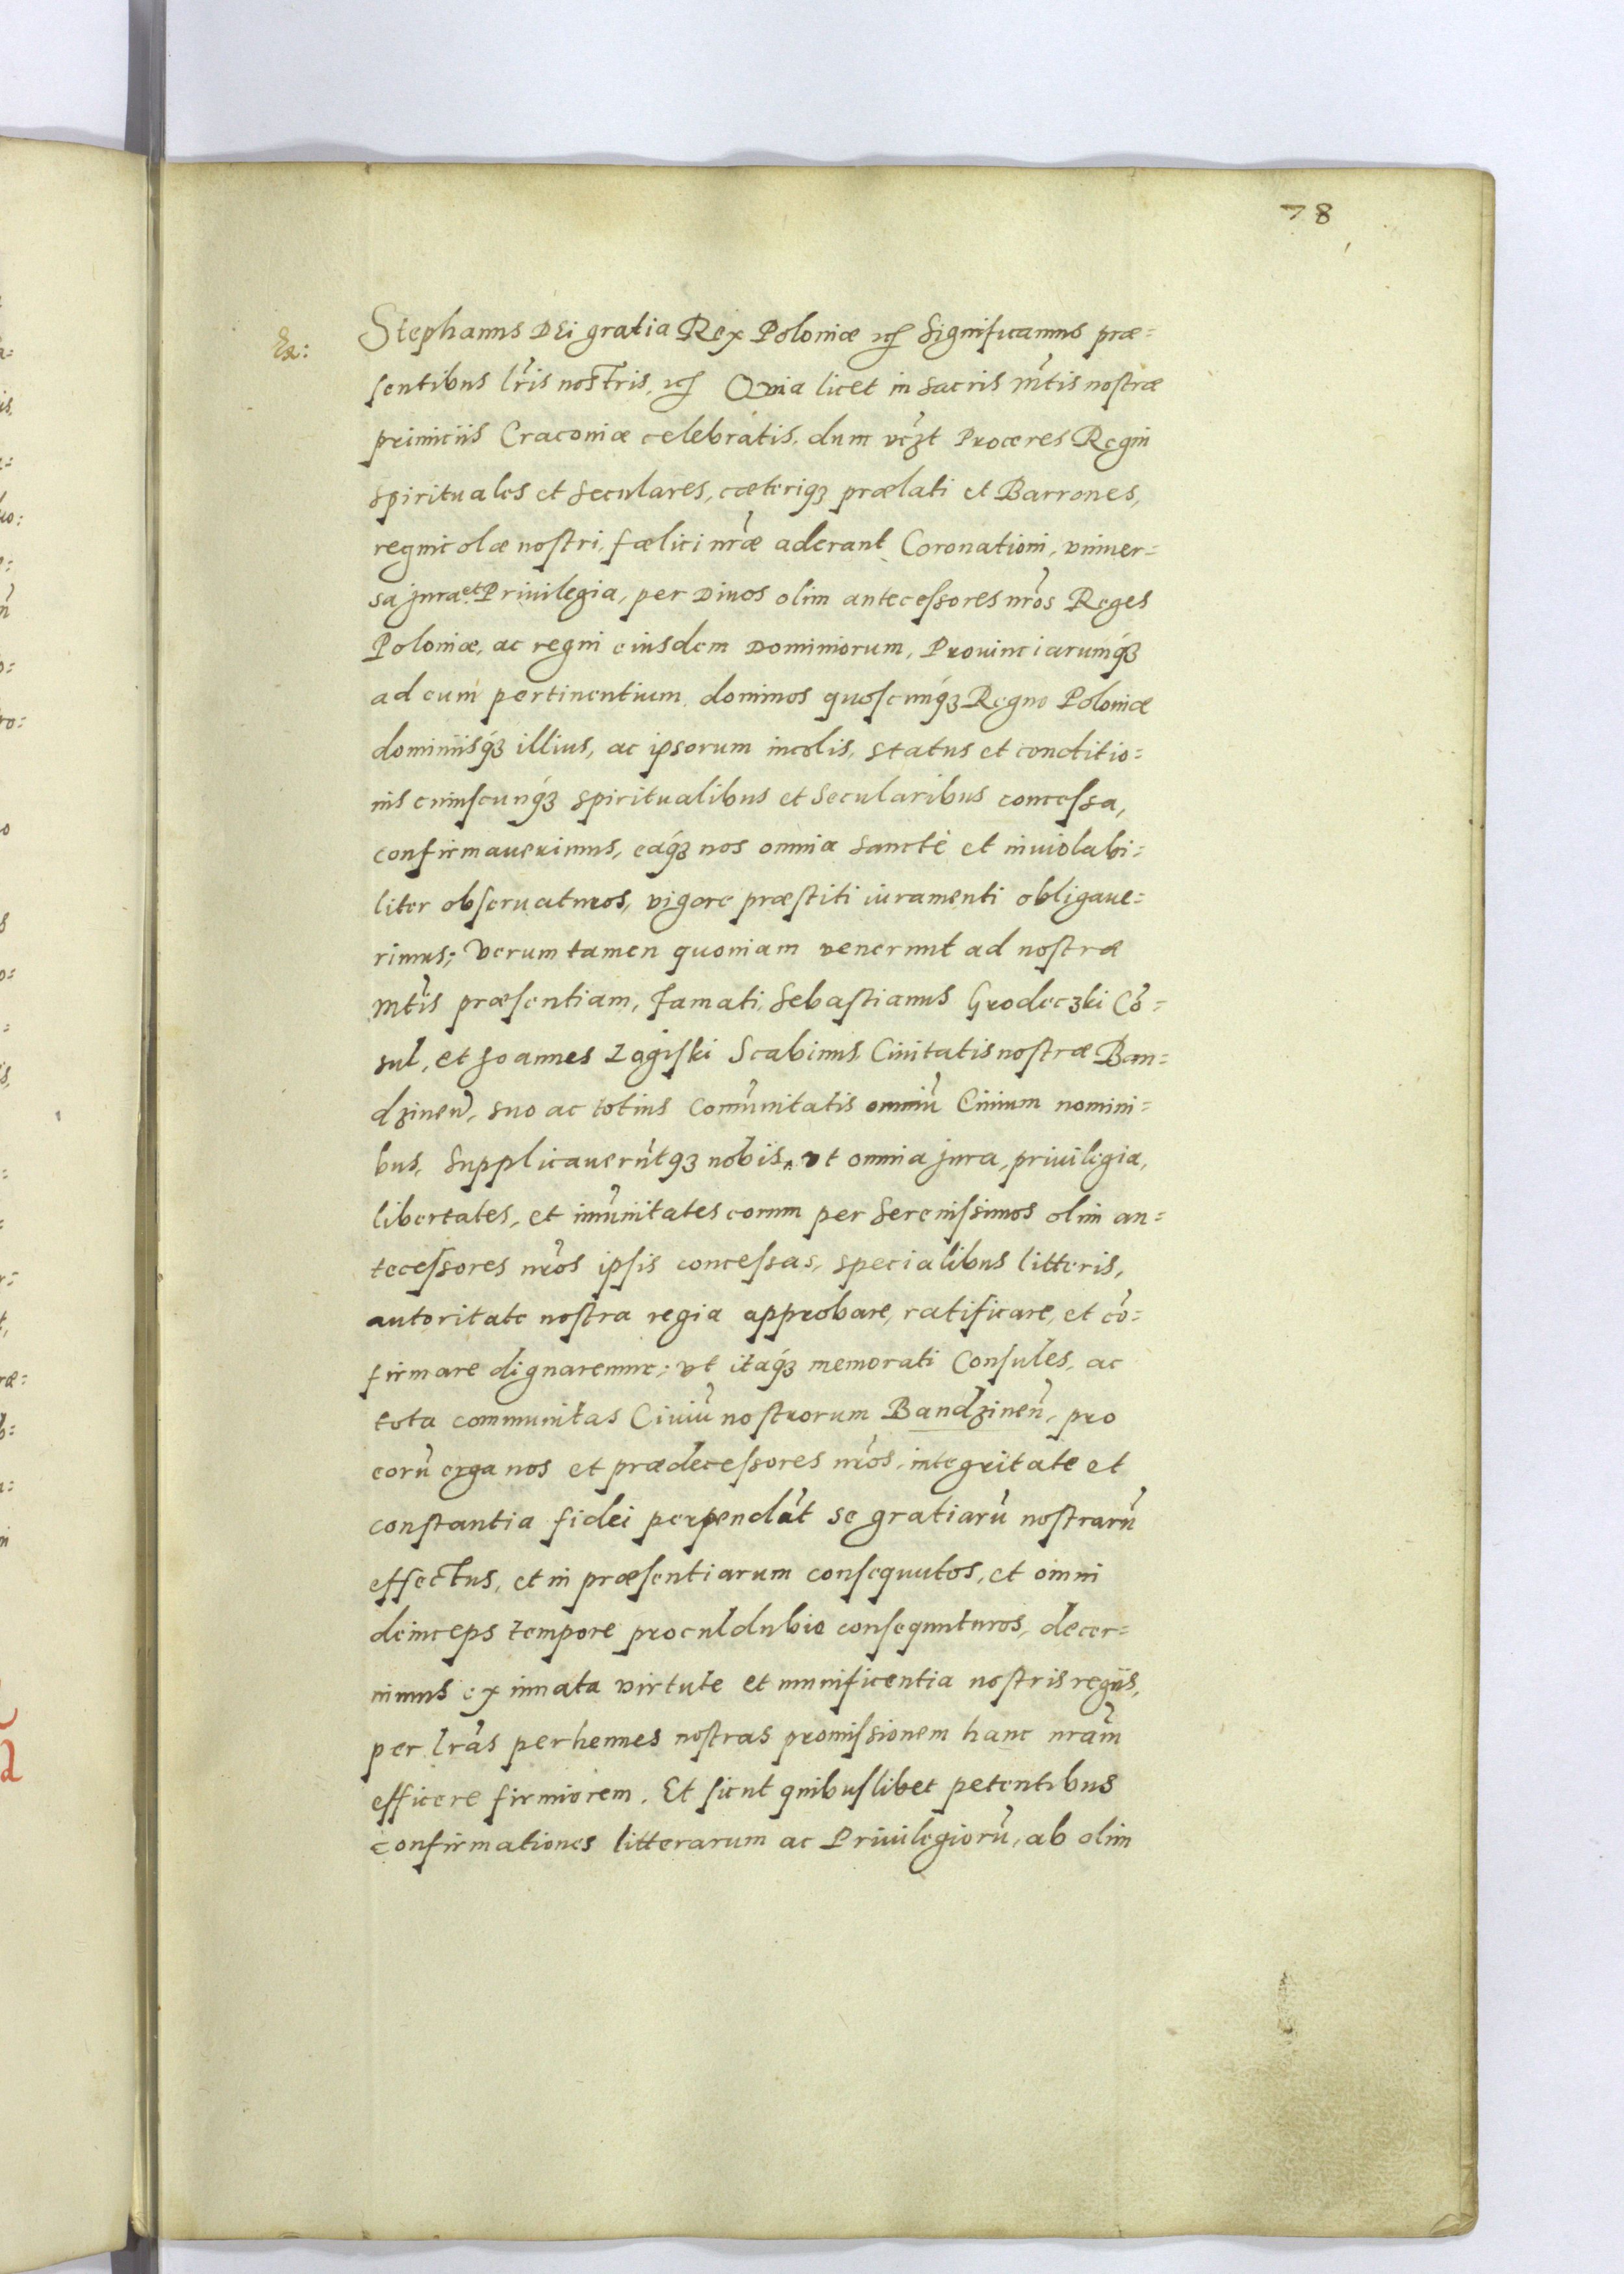 78
Ex:
Stephanus DEi gratia Rex Poloniæ etc Significamus præ=
sentibus lr̃is nostris, etc Quia licet in sacris Mt̃is nostræ
primiciis Cracoviæ celebratis, dum vcz̃t Proceres Regni
spirituales et seculares, cæteriqꝫ prælati et Barrones,
regnicolæ nostri, fælici nr̃æ aderant Coronationi, univer=
sa jura et Privilegia, per Divos olim antecessores nr̃os Reges
Poloniæ, ac regni eiusdem Dominiorum, Provinciarumqꝫ
ad eum pertinentium dominos quoscunqꝫ Regno Poloniæ
dominiisqꝫ illius, ac ipsorum incolis, status et conditio=
nis cuiuscunqꝫ spiritualibus et Secularibus concessa,
confirmaverimus, eaqꝫ nos omnia sanctè et inviolabi=
liter observaturos, vigore præstiti iuramenti obligave=
rimus; Verum tamen quoniam venerunt ad nostræ
Mt̃is præsentiam, famati, Sebastianus Grodeczki Cõ=
sul, et Joannes Zagiski Scabinus Civitatis nostræ Ban=
dzineñ, suo ac totius Com̃unitatis omniũ Civium nomini=
bus, supplicaverũtqꝫ nobis, vt omnia jura, privilegia,
libertates, et im̃unitates eorum per Serenissimos olim an=
tecessores nr̃os ipsis concessas, specialibus litteris,
autoritate nostra regia approbare, ratificare, et cõ=
firmare dignaremur; vt itaqꝫ memorati Consules, ac
tota communitas Civiũ nostrorum Bandzineñ, pro
eorũ erga nos et prædecessores nr̃os, integritate et
constantia fidei perpendãt se gratiarũ nostrarũ
effectus, et in præsentiarum consequutos, et omni
deinceps tempore proculdubio consequuturos, decer=
nimus ex innata virtute et munificentia nostris regiis,
per lr̃as perhennes nostras promissionem hanc nr̃am
efficere firmiorem. Et sicut quibuslibet petentibus
confirmationes litterarum ac Privilegiorũ, ab olim